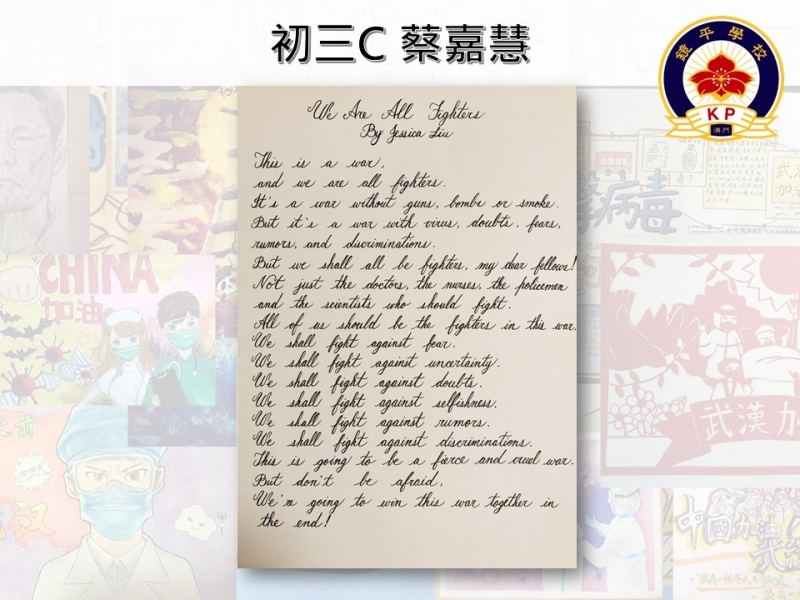 初三C 蔡嘉慧
鏡平學校
KP
澳門
We Are All Fighters
By Jessica Liu
This is a war,
and we are all fighters.
It's a war without guns, bombs or smoke.
But it's a war with virus, doubts. fears,
rumors, and discriminations.
But we shall all be fighters, my dear fellows!
Not just the doctors, the nurses, the policemen
and the scientists who should fight.
All of us should be the fighters in this war.
We shall fight against fear.
We shall fight against uncertainty.
We shall fight against doubts.
We shall fight against selfishness.
We shall fight against rumors.
We shall fight against discriminations.
This is going to be a fierce and cruel war.
But don't be afraid,
We're going to win this war together in
the end!
CHINA
加油
病毒
武漢加
中國加油